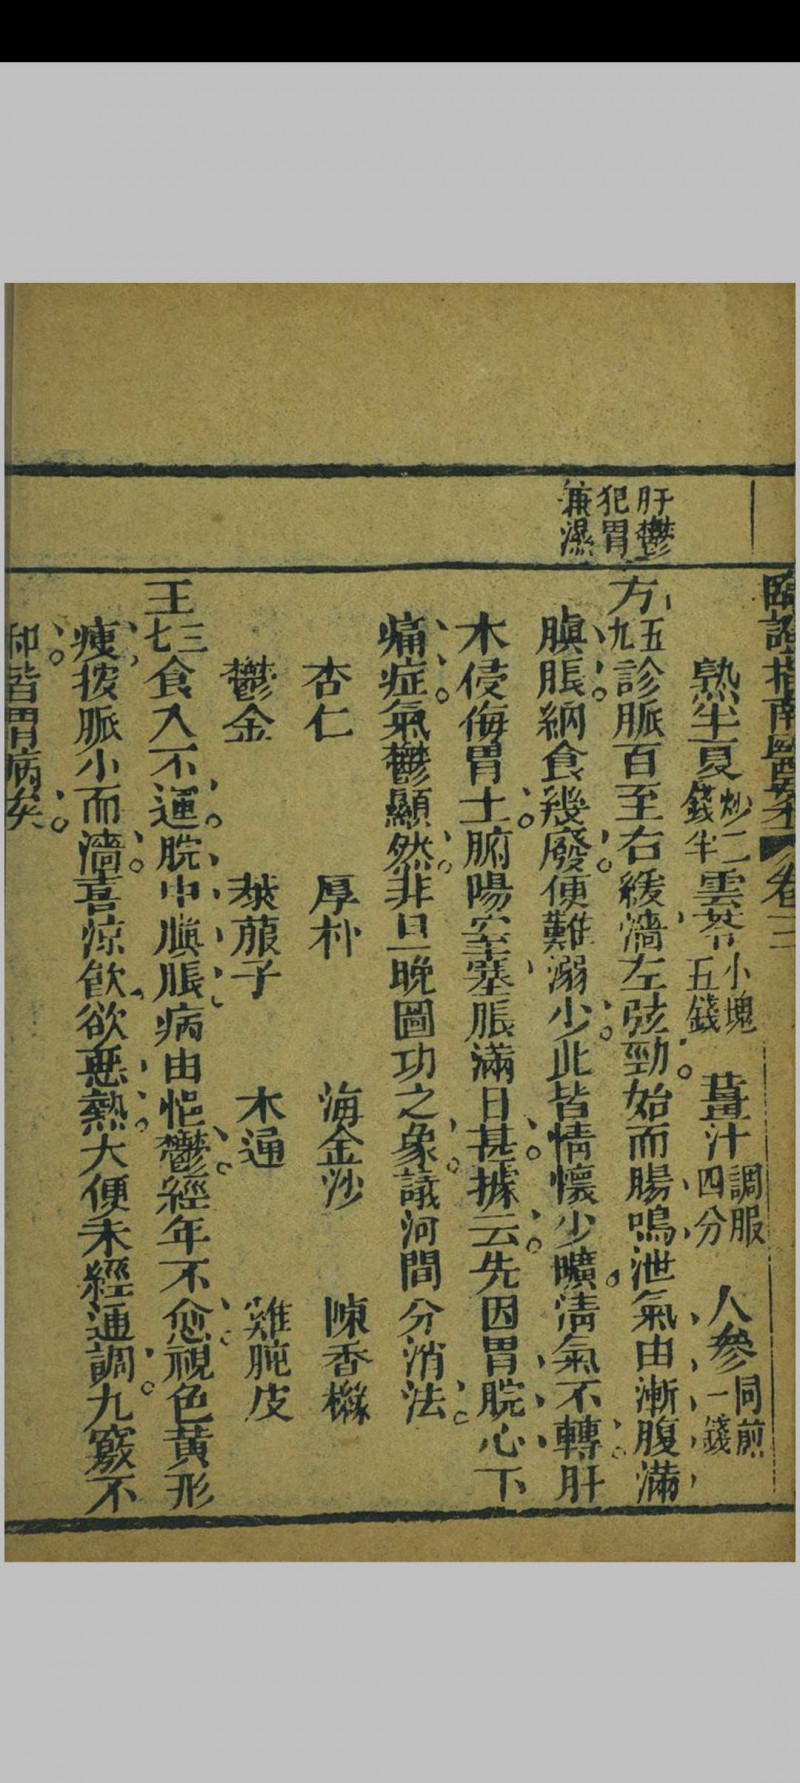 臨證指南醫案 卷三
熟半夏炒二錢半 雲苓小塊五錢 薑汁調服四分 人參同煎一錢
肝鬱犯胃兼濕
方五九診脈百至右緩濇左弦勁始而腸鳴泄氣由漸腹滿
䐜脹納食幾廢便難溺少此皆情懷少曠清氣不轉肝
木侵侮胃土腑陽窒塞脹滿日甚據云先因胃脘心下
痛症氣鬱顯然非旦晚圖功之象議河間分消法
杏仁 厚朴 海金沙 陳香櫞
鬱金 萊菔子 木通 雞肫皮
王三七食入不運脘中䐜脹病由悒鬱經年不愈視色黃形
瘦按脈小而濇喜涼飲欲惡熱大便未經通調九竅不
和皆胃病矣